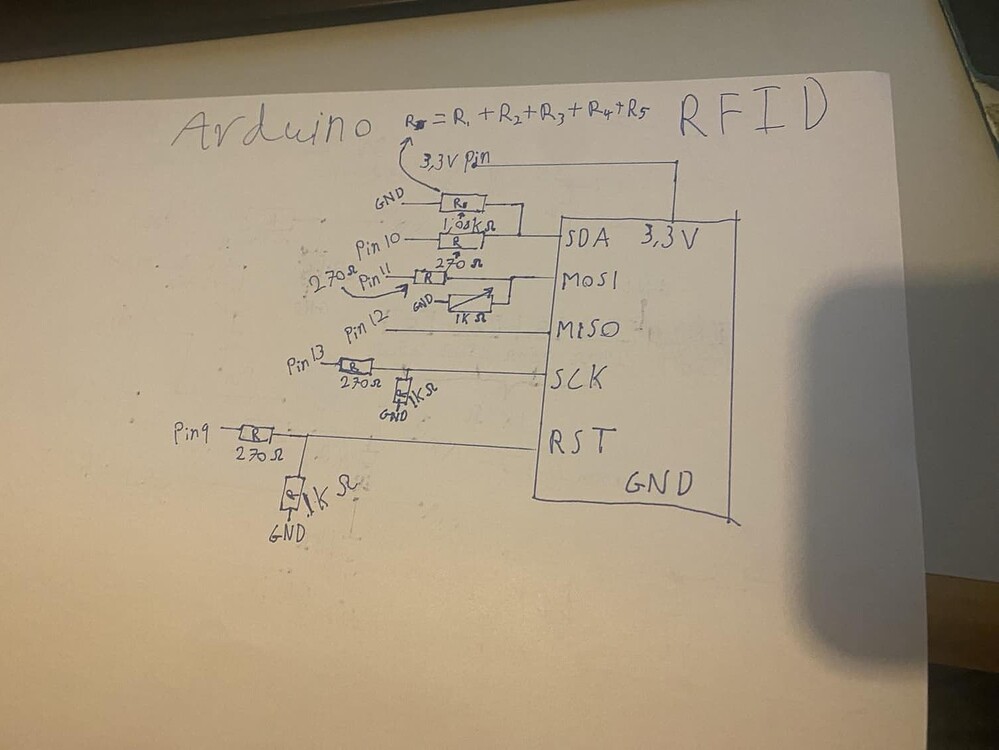 Arduino
R5 = R1 + R2 + R3 + R4 + R5
RFID
3,3V Pin
GND
R5
1,08kΩ
Pin 10
R
270 Ω
SDA
3,3 V
270 Ω
Pin 11
R
MOSI
GND
1K Ω
Pin 12
MISO
Pin 13
R
270 Ω
R
1K Ω
GND
SCK
Pin 9
R
270 Ω
RST
R
1K Ω
GND
GND